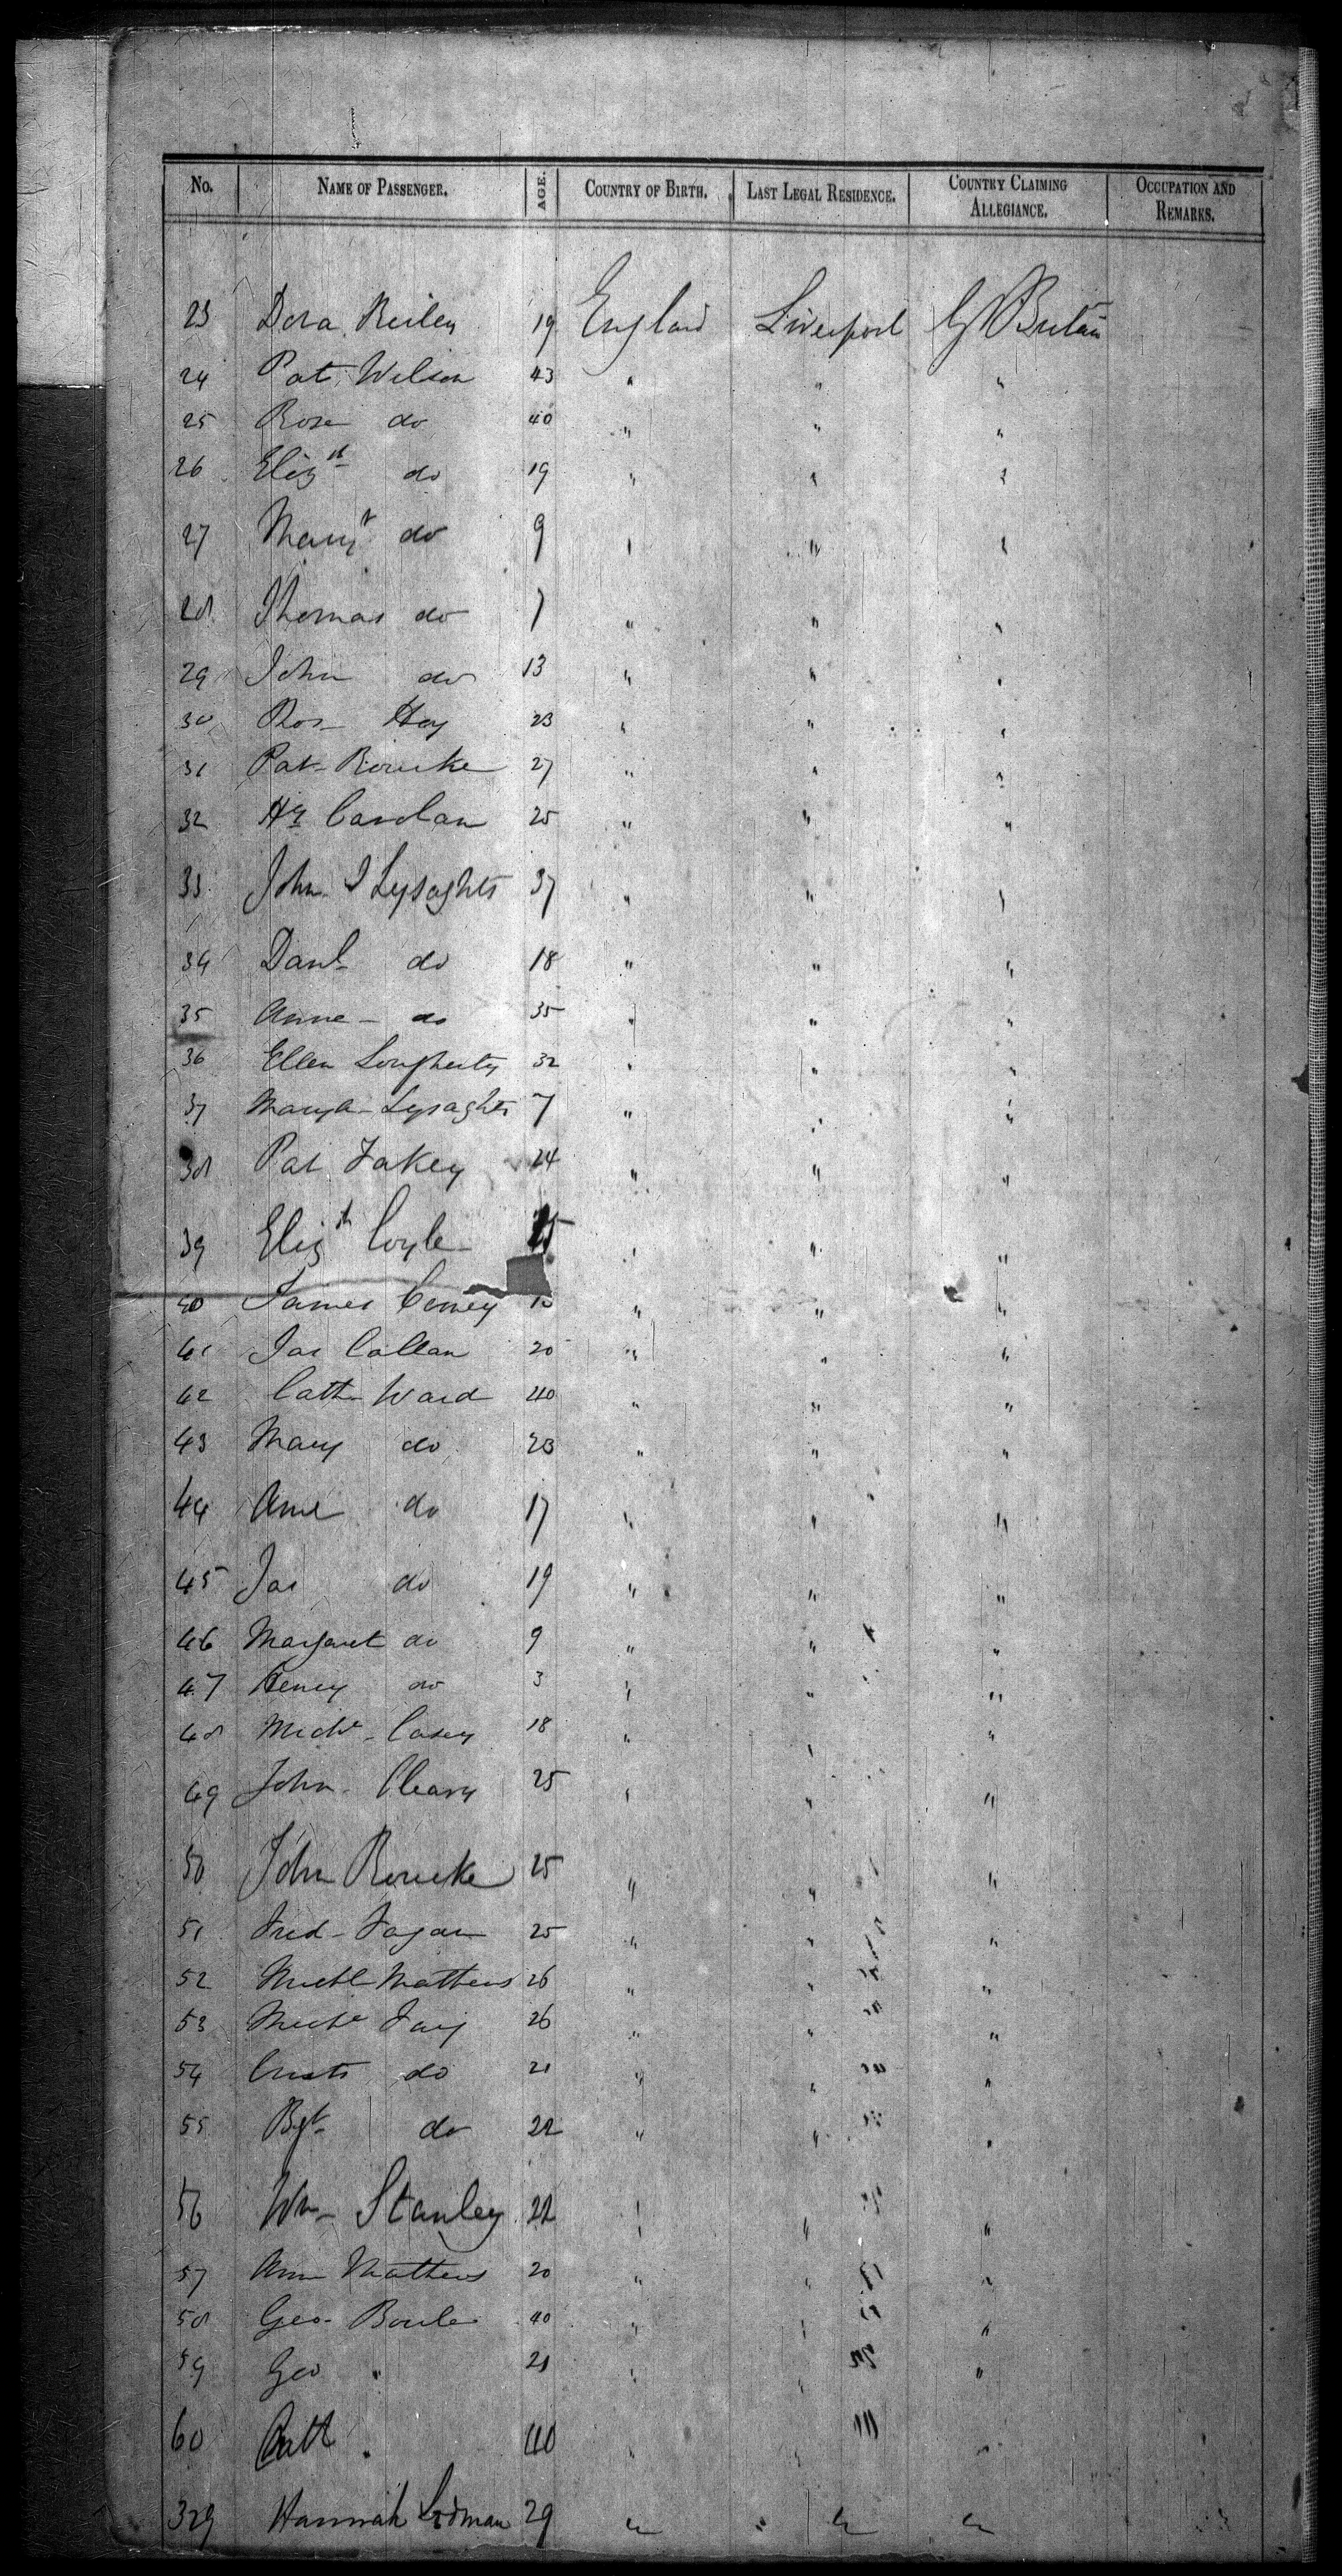 No. NAME OF PASSENGER. AGE. COUNTRY OF BIRTH. LAST LEGAL RESIDENCE. COUNTRY CLAIMING ALLEGIANCE. OCCUPATION AND REMARKS.
23 Dora Reiley 19 England Liverpool Gt Britain
24 Pat Wilson 43 " " "
25 Rose do 40 " " "
26 Elizth do 19 " " "
27 Margt do 9 " " "
28 Thomas do 7 " " "
29 John do 13 " " "
30 Hoy 23 " " "
31 Pat Rourke 27 " " "
32 Hy Carolan 25 " " "
33 John I Lysaghts 37 " " "
34 Danl do 18 " " "
35 Anne do 35 " " "
36 Ellen Lougherty 32 " " "
37 Mary A Lysaghts 7 " " "
38 Pat Fakey 24 " " "
39 Elizth Coyle " " "
40 James " " "
41 Jas Callan 20 " " "
42 Cath Ward 40 " " "
43 Mary do 23 " " "
44 Anne do 17 " " "
45 Jas do 19 " " "
46 Margaret do 9 " " "
47 Henry do 3 " " "
48 Michl Casey 18 " " "
49 John Cleary 25 " " "
50 John Rourke 25 " " "
51 Fred Fagan 25 " " "
52 Michl Mathews 26 " " "
53 Michl 26 " " "
54 do 21 " " "
55 Bgt do 22 " " "
56 Wm Stanley 22 " " "
57 Ann Mathews 20 " " "
58 Geo 40 " " "
59 Geo " 21 " " "
60 Cath " 40 " " "
329 Hannah 29 " " " "